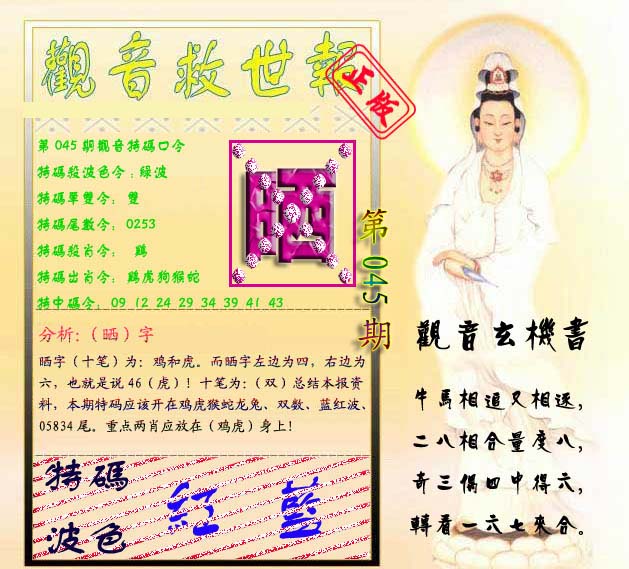 觀音救世報
正版
第 045 期觀音特碼口令
特碼殺波色令：綠波
特碼單雙令： 雙
特碼尾數令： 0253
特碼殺肖令： 鷄
特碼出肖令： 鷄虎狗猴蛇
特中碼令： 09 12 24 29 34 39 41 43
晒
第 045 期
分析：（晒）字
晒字（十笔）为：鸡和虎。而晒字左边为四，右边为
六，也就是说 46（虎）！十笔为：（双）总结本报资
料，本期特码应该开在鸡虎猴蛇龙兔、双数、蓝红波、
05834 尾。重点两肖应放在（鸡虎）身上！
特碼
波色
紅 藍
觀音玄機書
牛馬相追又相逐，
二八相合量度八，
奇三偶四中得六，
轉看一六七來合。